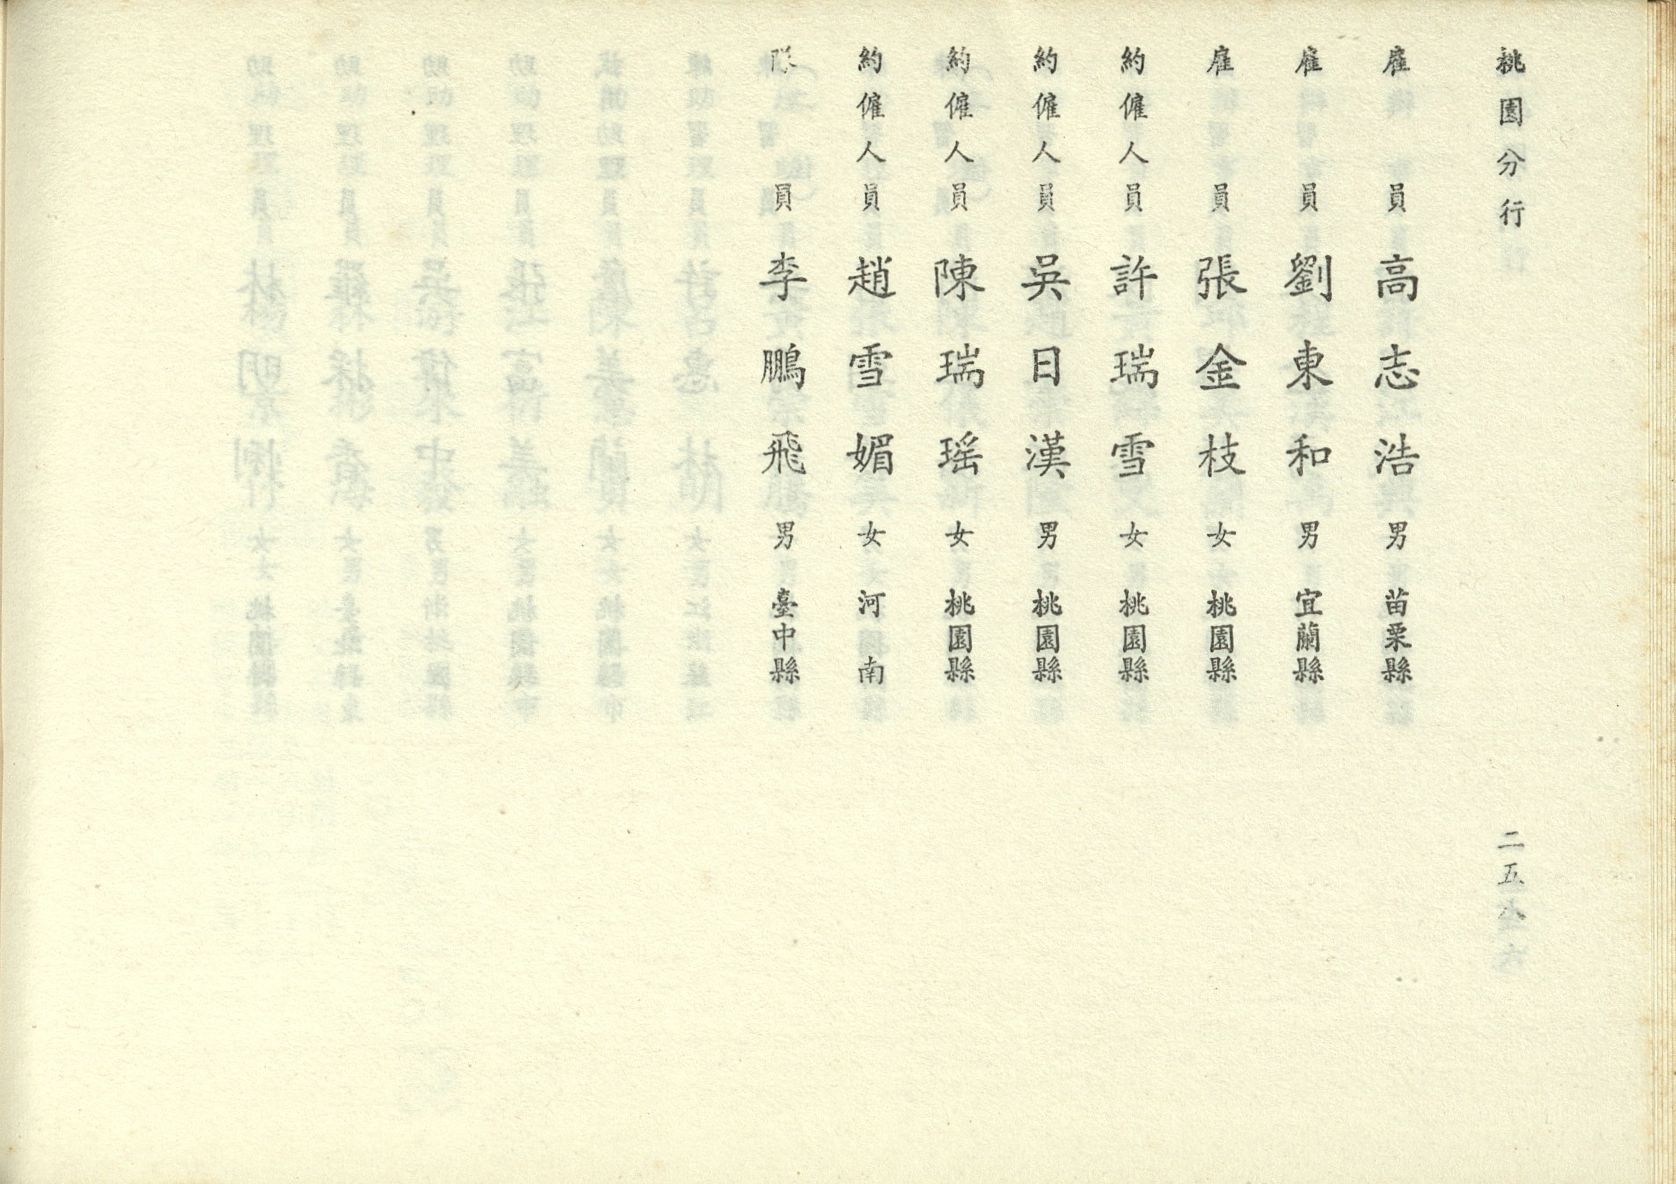 桃園分行
二五八
雇員 高志浩 男 苗栗縣
雇員 劉東和 男 宜蘭縣
雇員 張金枝 女 桃園縣
約僱人員 許瑞雪 女 桃園縣
約僱人員 吳日漢 男 桃園縣
約僱人員 陳瑞瑤 女 桃園縣
約僱人員 趙雪媚 女 河南
隊員 李鵬飛 男 臺中縣